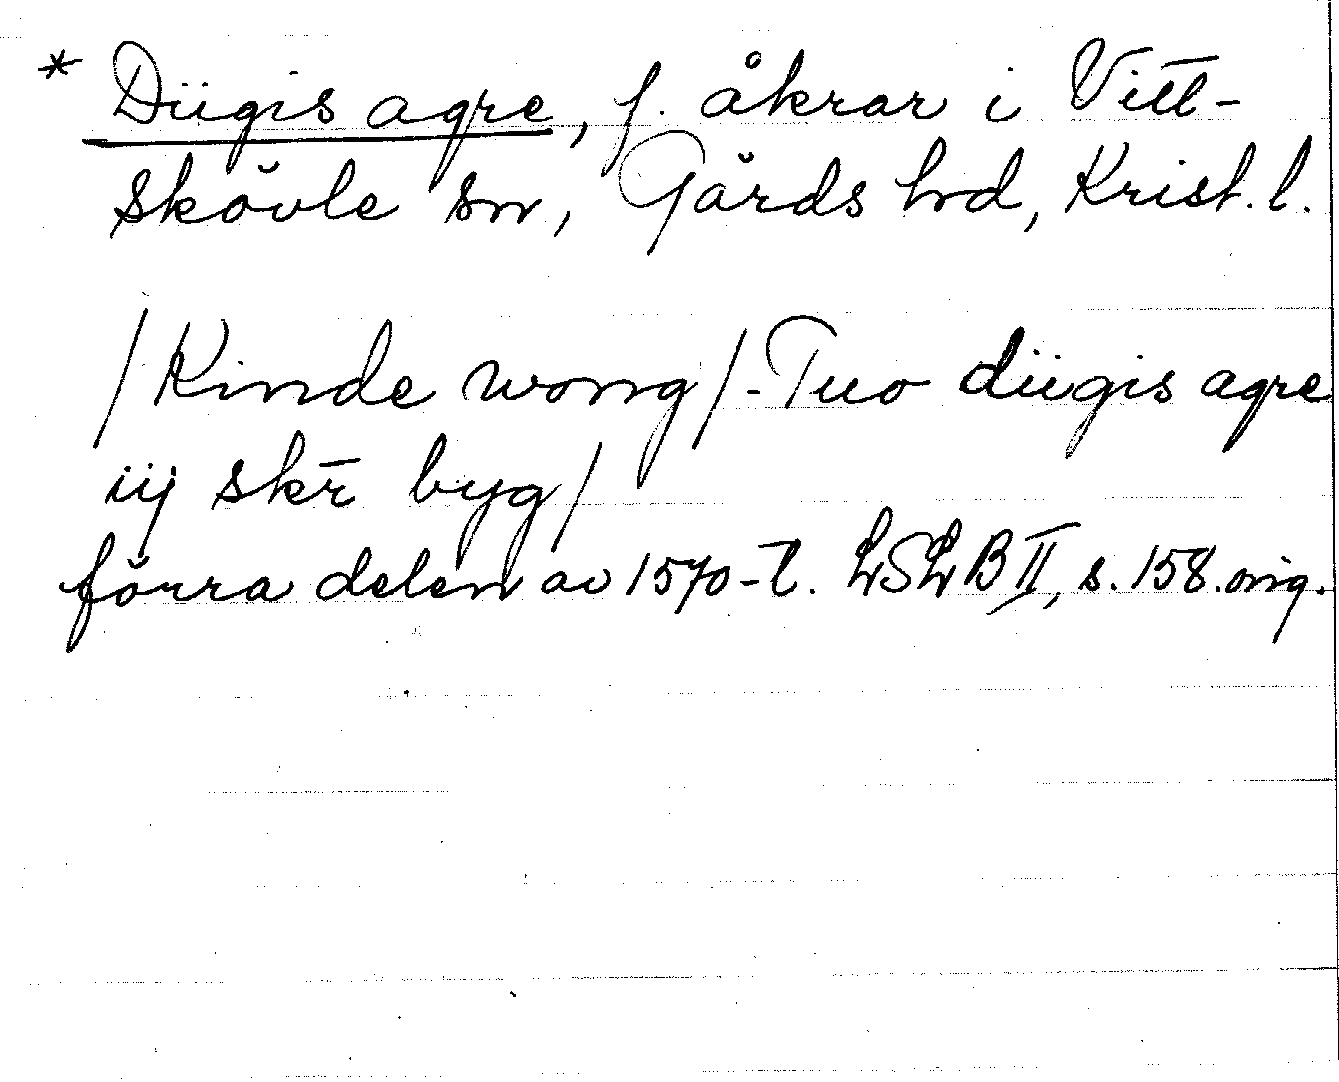 * Diigis agre, f. åkrar i Vitt-
skövle sn, Gärds hd, Krist. l.
/Kinde wong/-Tuo diigis agre
iij skr̄ byg/
förra delen av 1570-t. LSLB II, s. 158. orig.